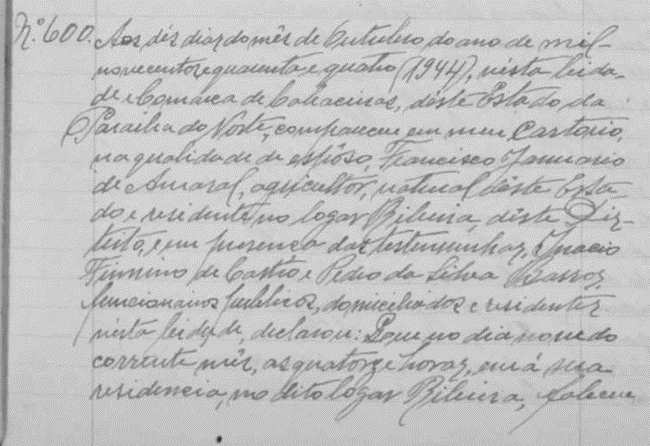 Nº 600. Aos déz dias do mês de Outubro do ano de mil
novecentos e quarenta e quatro (1944), nésta Cida-
de e Comarca de Cabaceiras, dêste Estado da
Paraiba do Norte, compareceu em meu Cartorio,
na qualidade de espôso, Francisco Januario
de Amaral, agricultor, natural dêste Esta-
do e residente no logar Ribeira, dêste Dis-
trito, e em presença das testemunhas, Ignacio
Firmino de Castro e Pedro da Silva Barros,
funcionarios publicos, domiciliados e residentes
nésta Cidade, declarou: Que no dia nove do
corrente mês, as quatorze horas, em á sua
residencia, no dito logar Ribeira, faleceu